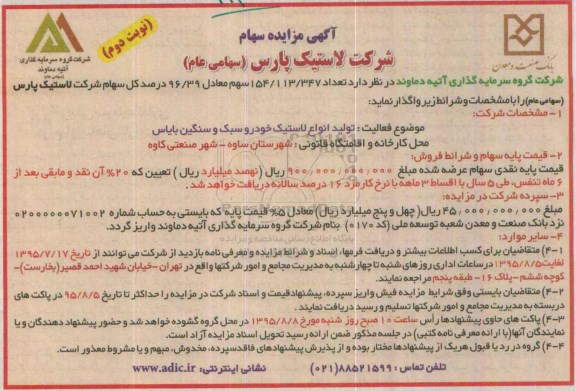 آگهی مزایده سهام
(نوبت دوم)
شرکت لاستیک پارس (سهامی عام)
شرکت گروه سرمایه گذاری
آتیه دماوند
(سهامی عام)
بانک صنعت و معدن
شرکت گروه سرمایه گذاری آتیه دماوند در نظر دارد تعداد ۱۵۴/۱۱۳/۳۴۷ سهم معادل ۹۶/۳۹ درصد کل سهام شرکت لاستیک پارس
(سهامی عام) را با مشخصات و شرائط زیر واگذار نماید:
۱- مشخصات شرکت:
موضوع فعالیت: تولید انواع لاستیک خودرو سبک و سنگین بایاس
محل کارخانه و اقامتگاه قانونی: شهرستان ساوه - شهر صنعتی کاوه
۲- قیمت پایه سهام و شرائط فروش:
قیمت پایه نقدی سهام عرضه شده مبلغ ۹۰۰,۰۰۰,۰۰۰,۰۰۰ ریال (نهصد میلیارد ریال) تعیین که ۲۰% آن نقد و مابقی بعد از
۶ ماه تنفس، طی ۵ سال با اقساط ۳ ماهه با نرخ کارمزد ۱۶ درصد سالانه دریافت خواهد شد.
۳- سپرده شرکت در مزایده:
مبلغ ۴۵,۰۰۰,۰۰۰,۰۰۰ ریال (چهل و پنج میلیارد ریال) معادل ۵% قیمت پایه که بایستی به حساب شماره ۰۲۰۰۰۰۰۰۷۱۰۰۲
نزد بانک صنعت و معدن شعبه توسعه ملی (کد ۰۱۷۰) بنام شرکت گروه سرمایه گذاری آتیه دماوند واریز گردد.
۴- سایر موارد:
۴-۱) متقاضیان برای کسب اطلاعات بیشتر و دریافت فرمها، اسناد و شرائط مزایده و معرفی نامه بازدید از شرکت می توانند از تاریخ ۱۳۹۵/۷/۱۷
لغایت ۱۳۹۵/۸/۵ در ساعات اداری روزهای شنبه تا چهارشنبه به مدیریت مجامع و امور شرکتها واقع در تهران - خیابان شهید احمد قصیر (بخارست)-
کوچه ششم - پلاک ۱۶- طبقه پنجم مراجعه نمایند.
۴-۲) متقاضیان بایستی وفق شرایط مزایده فیش واریز سپرده، پیشنهاد قیمت و اسناد شرکت در مزایده را حداکثر تا تاریخ ۹۵/۸/۵ در پاکت های
دربسته به مدیریت مجامع و امور شرکتها تسلیم و رسید دریافت نمایند.
۴-۳) پاکت های حاوی پیشنهادها رأس ساعت ۱۰ صبح روز شنبه مورخ ۱۳۹۵/۸/۸ در محل گروه گشوده خواهد شد و حضور پیشنهاد دهندگان و یا
نمایندگان آنها (با ارائه معرفی نامه کتبی) در جلسه مذکور ضمن ارائه رسید تحویل اسناد مزایده آزاد است.
۴-۴) گروه در رد یا قبول هریک از پیشنهادها مختار بوده و از پذیرش پیشنهادهای فاقد سپرده، مخدوش، مبهم و یا مشروط معذور است.
تلفن تماس: ۸۸۵۲۱۵۹۹ (۰۲۱) نشانی اینترنتی: www.adic.ir